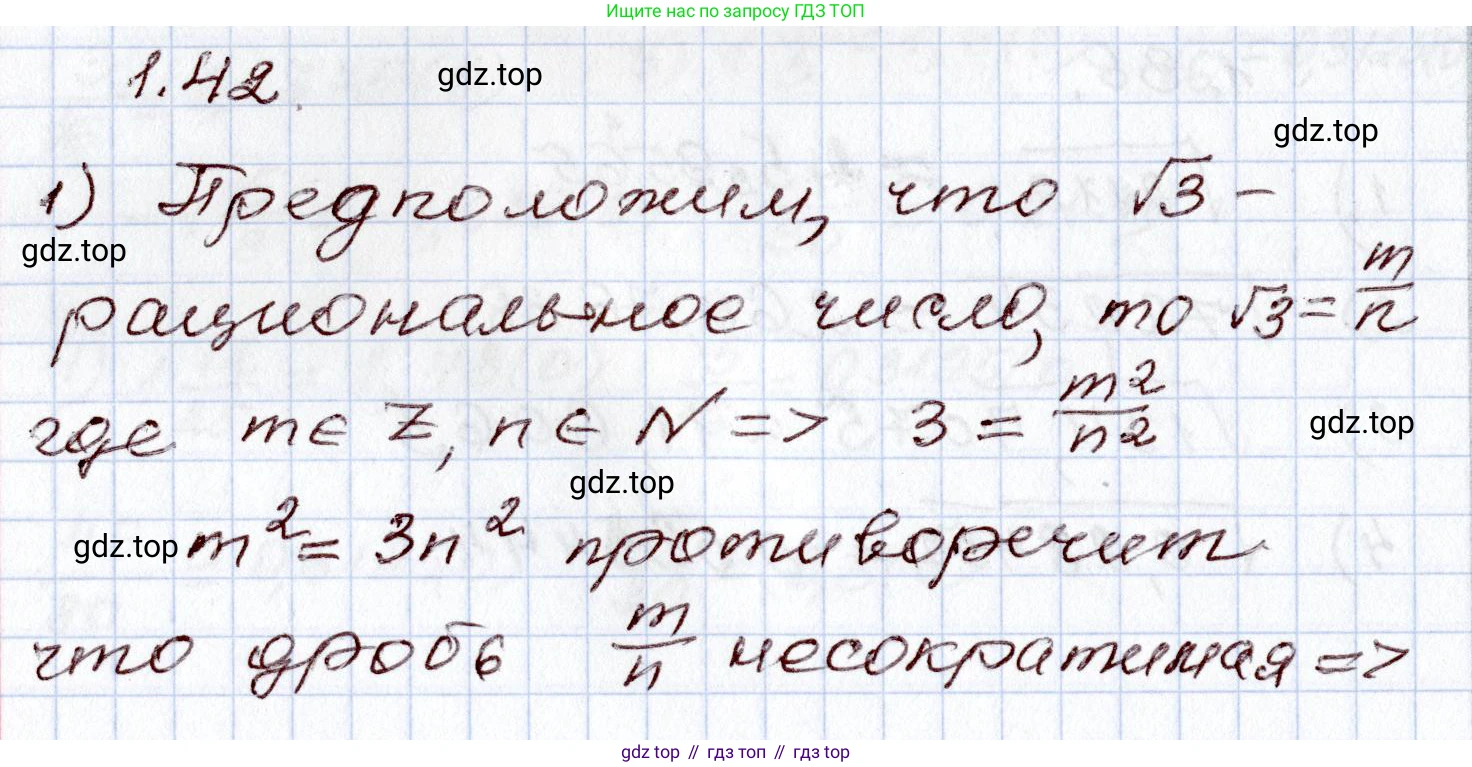 Ищите нас по запросу ГДЗ ТОП
1.42.
gdz.top
gdz.top
1) Предположим, что √3 -
gdz.top
рациональное число, то √3 = m/n
где m ∈ Z, n ∈ N => 3 = m²/n²
gdz.top
gdz.top
gdz.top
m² = 3n² противоречит
что дробь m/n несократимая =>
gdz top // гдз топ // гдз top